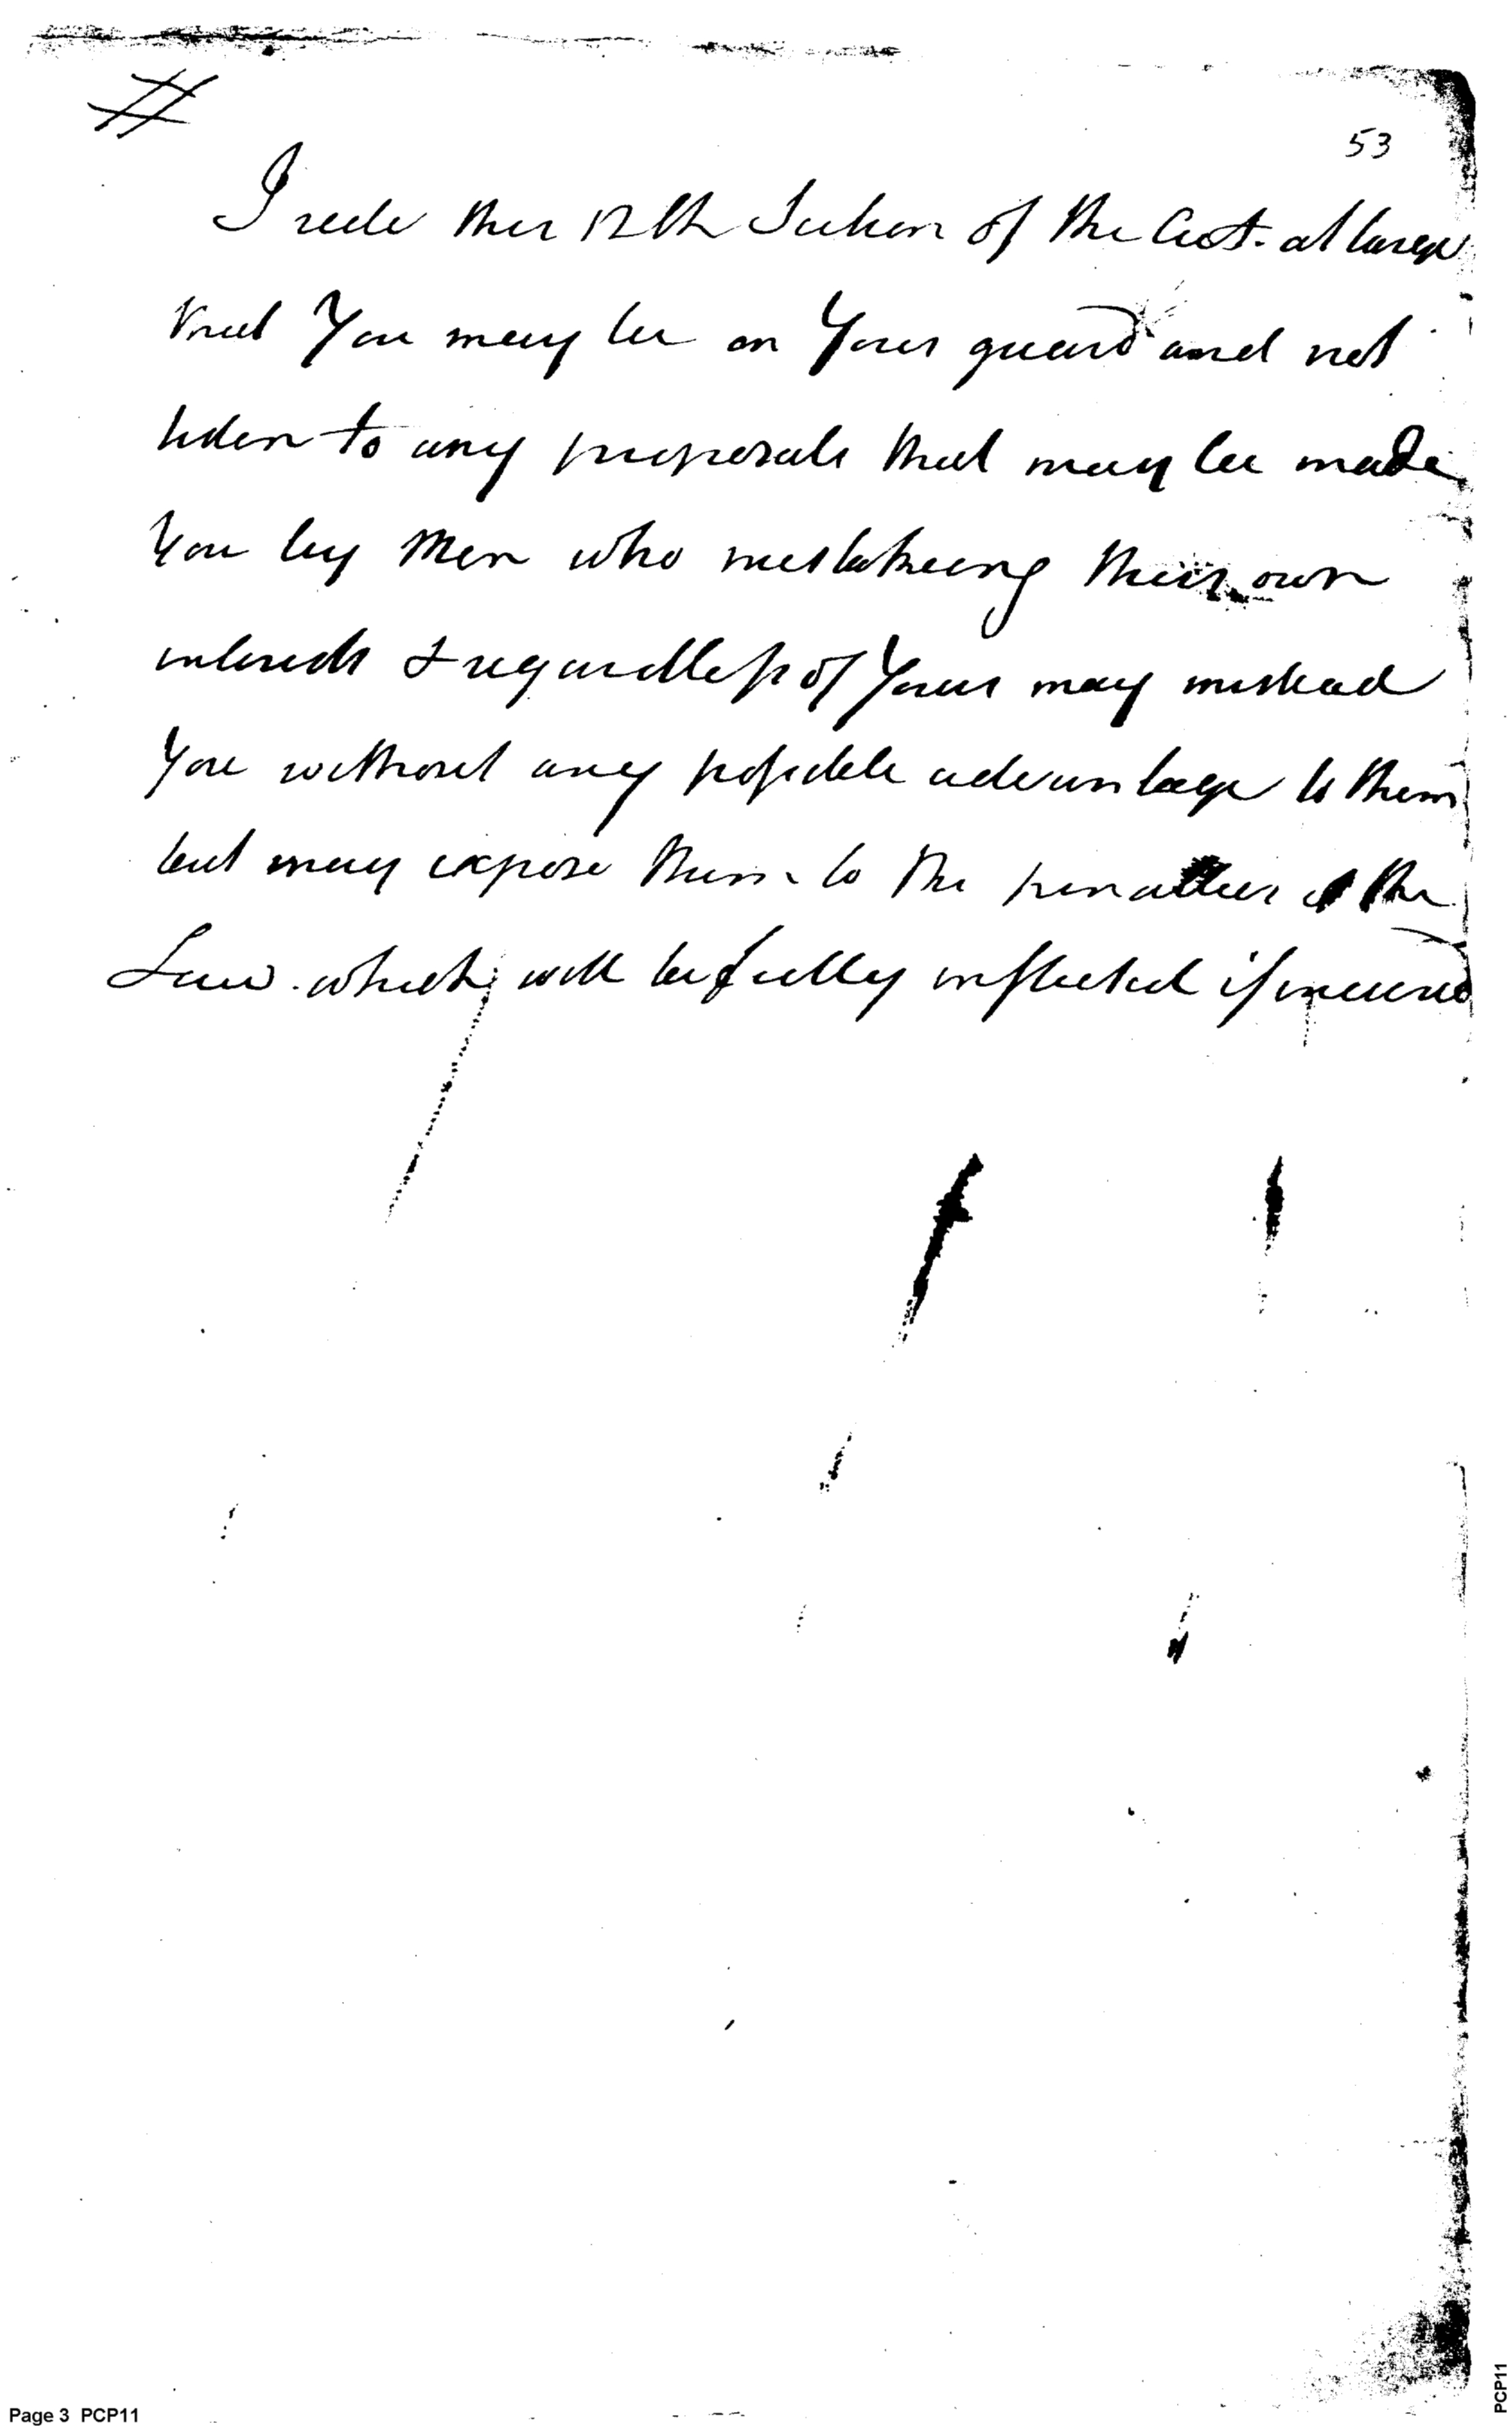 #
53
I recite this 12th Section of the Act. at large
that You may be on Your guard and not
listen to any proposals that may be made
You by Men who mistakeing their own
interests & regardless of Yours may mislead
You without any possible advantage to them
but may expose them to the penalties of the
Law. which will be fully inflicted if incurred
Page 3 PCP11
PCP11